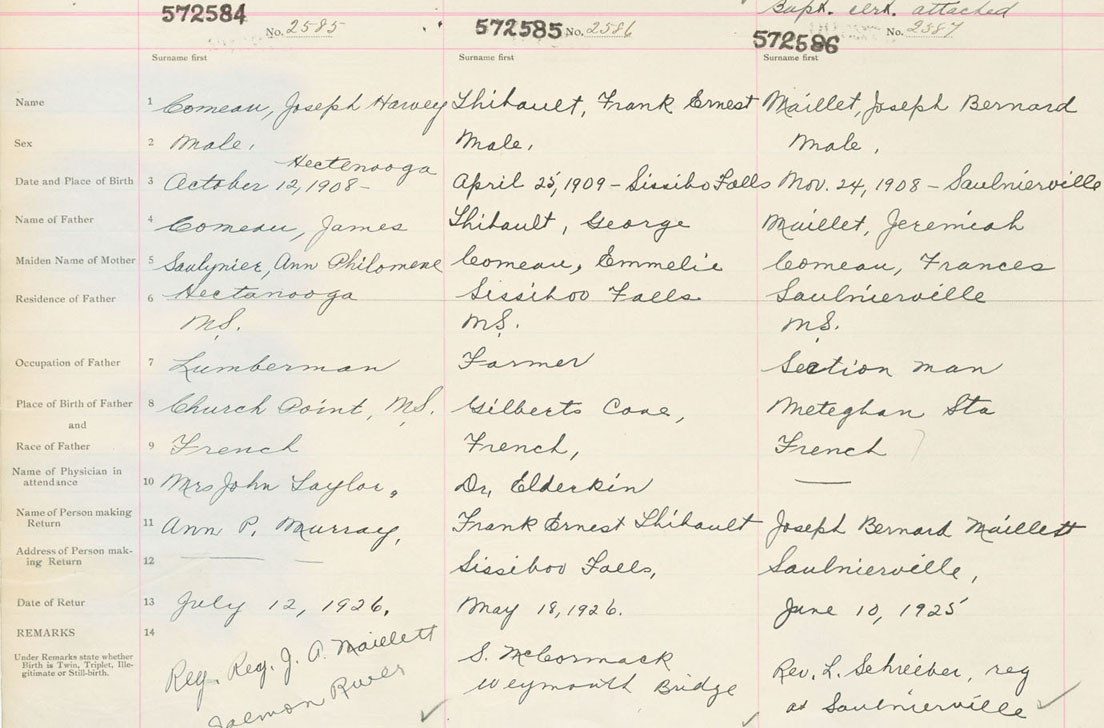 Bapt. cert. attached
572584 No. 2585 572585 No. 2586 572586 No. 2587
Surname first Surname first Surname first
Name 1 Comeau, Joseph Harvey Thibault, Frank Ernest Maillet, Joseph Bernard
Sex 2 Male, Male, Male,
Hectenooga
Date and Place of Birth 3 October 12, 1908- April 25, 1909 - Sissibo Falls Nov. 24, 1908 - Saulnierville
Name of Father 4 Comeau, James Thibault, George Maillet, Jeremiah
Maiden Name of Mother 5 Saulynier, Ann Philomene Comeau, Emmelie Comeau, Frances
Residence of Father 6 Hectanooga Sissiboo Falls Saulnierville
N.S. N.S. N.S.
Occupation of Father 7 Lumberman Farmer Section man
Place of Birth of Father 8 Church Point, N.S. Gilberts Cove, Meteghan Sta
and
Race of Father 9 French French, French
Name of Physician in
attendance 10 Mrs John Taylor, Dr. Elderkin —
Name of Person making
Return 11 Ann P. Murray, Frank Ernest Thibault Joseph Bernard Maillett
Address of Person mak-
ing Return 12 — — Sissiboo Falls, Saulnierville,
Date of Retur 13 July 12, 1926. May 18, 1926. June 10, 1925
REMARKS 14
Under Remarks state whether
Birth is Twin, Triplet, Ille-
gitimate or Still-birth.
Reg. Reg. J. A. Maillett S. McCormack Rev. L. Schreiber, reg
Salmon River Weymouth Bridge at Saulnierville